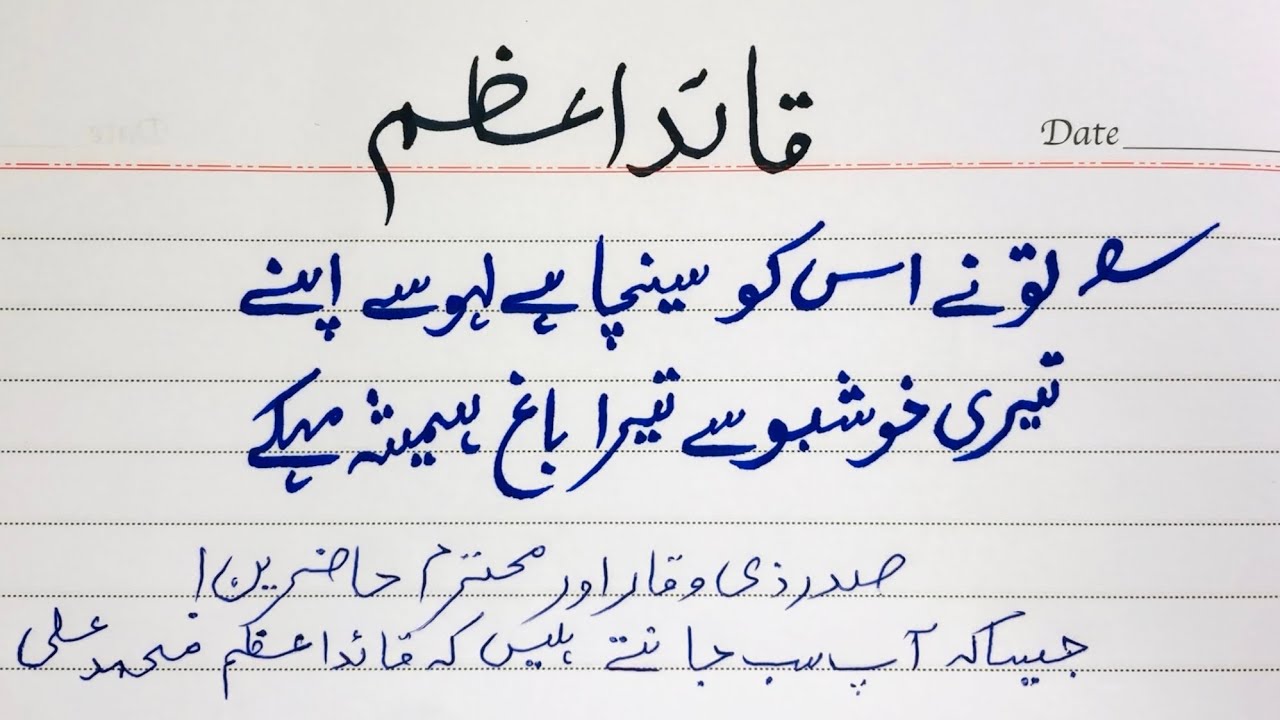 قائداعظم
Date
تو نے اس کو سینچا ہے لہو سے اپنے
تیری خوشبو سے تیرا باغ ہمیشہ مہکے
صدر ذی وقار اور محترم حاضرین!
جیسا کہ آپ سب جانتے ہیں کہ قائداعظم محمد علی